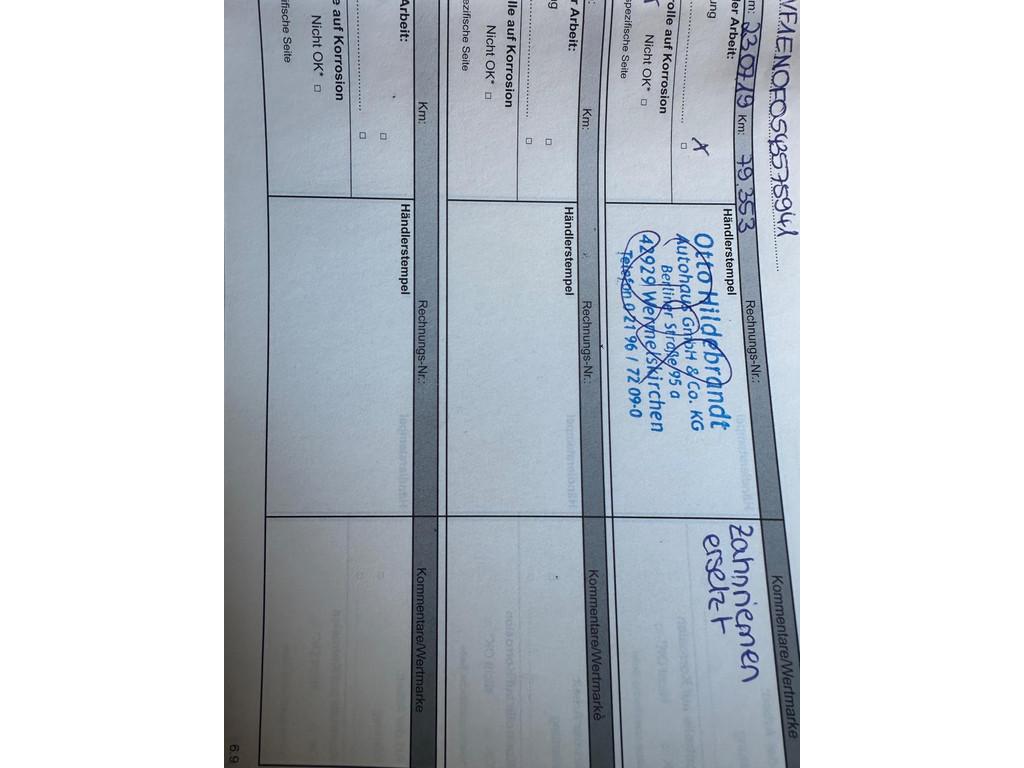 VF1EN0F0543575941
m: 23.07.19 Km: 79.353 Rechnungs-Nr.: Kommentare/Wertmarke
der Arbeit: Händlerstempel
ung
X
Otto Hildebrandt
Autohaus GmbH & Co. KG
Berliner Straße 95 a
42929 Wermelskirchen
Telefon 0 21 96 / 72 09-0
Zahnriemen
ersetzt
olle auf Korrosion
Nicht OK*
pezifische Seite
Km: Rechnungs-Nr.: Kommentare/Wertmarke
r Arbeit: Händlerstempel
ng
lle auf Korrosion
Nicht OK*
ezifische Seite
Km: Rechnungs-Nr.: Kommentare/Wertmarke
Arbeit: Händlerstempel
e auf Korrosion
Nicht OK*
ifische Seite
6.9